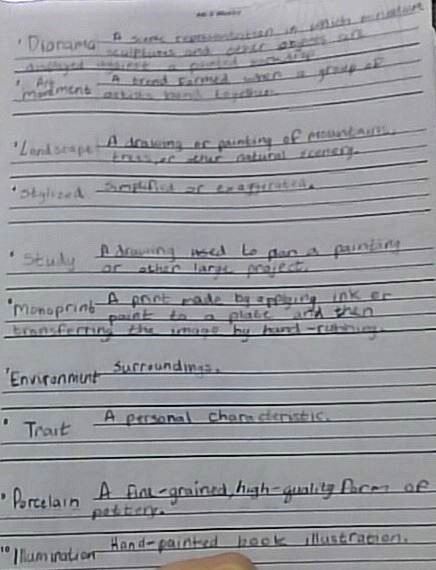 1 Diorama A scene representation in which miniature
sculptures and other objects are
displayed against a painted backdrop
2 Art Movment A trend formed when a group of
artists band together.
3 Landscape A drawing or painting of mountains,
trees, or other natural scenery.
4 Stylized Simplified or exaggerated.
5 Study A drawing used to plan a painting
or other large project.
6 Monoprint A print made by applying ink or
paint to a plate and then
transferring the image by hand-rubbing.
7 Environment Surroundings.
8 Trait A personal characteristic.
9 Porcelain A fine-grained, high-quality form of
pottery.
10 Illumination Hand-painted book illustration.